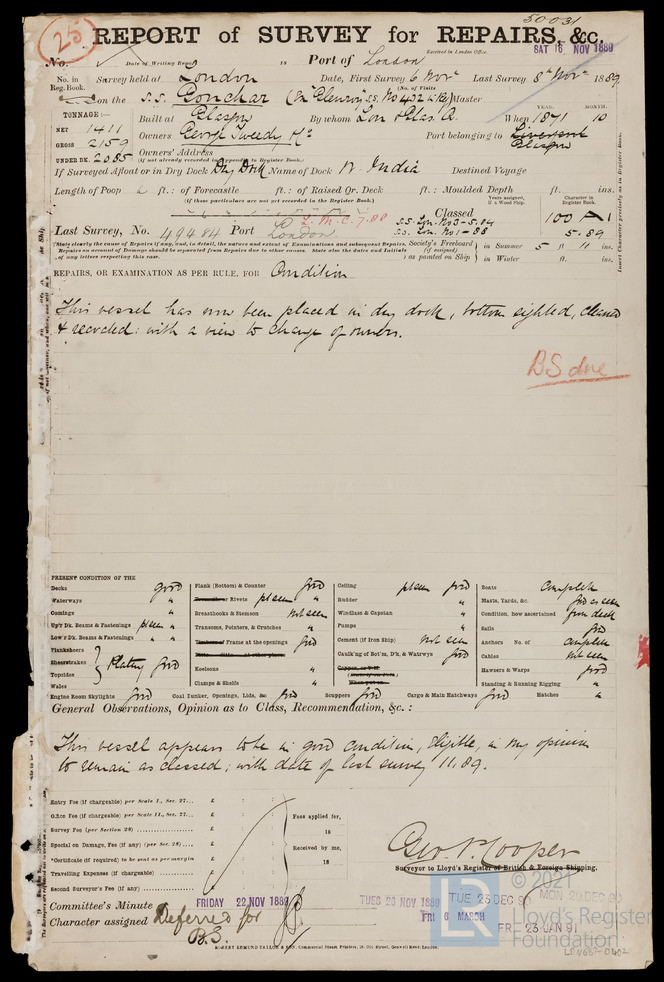 50031
25
REPORT of SURVEY for REPAIRS, &c.
Received in London Office.
SAT 16 NOV 1889
No. Date of Writing Report 18 Port of London
No. in Reg. Book. Survey held at London Date, First Survey 6 Novr Last Survey 8th Novr 1889
(No. of Visits
on the S.S. Gonchar Master
TONNAGE:- YEAR. MONTH.
Built at Glasgow By whom Lon & Glas Co. When 1871 10
NET 1411
GROSS 2159
UNDER DK. 2085
Owners George Tweedy & Co Port belonging to Liverpool
Glasgow
Owners' Address
(if not already recorded in Appendix to Register Book.)
If Surveyed Afloat or in Dry Dock Dry Dock Name of Dock W. India Destined Voyage
Length of Poop ft.: of Forecastle ft.: of Raised Qr. Deck ft.: Moulded Depth ft. ins.
(if these particulars are not yet recorded in the Register Book.)
Years assigned, if a Wood Ship. Character in Register Book.
Classed 100 A1
L.M.C. 7.88
S.S. Lon. No 3-5.84 5.89
S.S. Lon. No 1-88
Last Survey, No. 49484 Port London
Society's Freeboard (if assigned) as painted on Ship in Summer 5 ft 11 ins.
in Winter ft. ins.
REPAIRS, OR EXAMINATION AS PER RULE, FOR Condition
This vessel has now been placed in dry dock, bottom sighted, cleaned
& recoated: with a view to change of owners.
BS due
PRESENT CONDITION OF THE
Decks good
Waterways "
Comings "
Up'r Dk. Beams & Fastenings pl seen "
Low'r Dk. Beams & Fastenings " "
Planksheers
Sheerstrakes
Topsides
Wales
Plating good
Engine Room Skylights good
Plank (Bottom) & Counter good
Rivets pl seen "
Breasthooks & Stemson Not seen
Transoms, Pointers, & Crutches "
Frame at the openings good
Keelsons "
Clamps & Shelfs "
Coal Bunker, Openings, Lids, &c good
Ceiling pl seen good
Rudder "
Windlass & Capstan "
Pumps "
Cement (if Iron Ship) Not seen
Caulk'g of Bot'm, D'k, & Wat'rwys good
Scuppers good
Cargo & Main Hatchways good
Boats Complete
Masts, Yards, &c. good as seen
Condition, how ascertained from deck
Sails good
Anchors No. of Complete
Cables Not seen
Hawsers & Warps good
Standing & Running Rigging "
Hatches "
General Observations, Opinion as to Class, Recommendation, &c. :
This vessel appears to be in good condition, eligible, in my opinion
to remain as classed; with date of last survey 11.89.
Entry Fee (if chargeable) per Scale I., Sec. 27... £
Office Fee (if chargeable) per Scale II., Sec. 27... £
Survey Fee (per Section 28) £
Special on Damage, Fee (if any) (per Sec. 28) £
Certificate (if required) to be sent as per margin
Travelling Expenses (if chargeable) £
Second Surveyor's Fee (if any) £
Fees applied for,
18
Received by me,
18
Geo. P. Cooper
Surveyor to Lloyd's Register of British & Foreign Shipping.
Committee's Minute FRIDAY 22 NOV 1889 TUES 26 NOV 1889 TUE 23 DEC 90 MON 29 DEC 90
FRI 6 MARCH FRI. 23 JAN 91
Character assigned Deferred for
B.S.
ROBERT EDMUND TAYLOR & SON, Commercial Steam Printers, 19, Old Street, Goswell Road, London.
© 2021
LR
Lloyd's Register
Foundation
LON687-0402